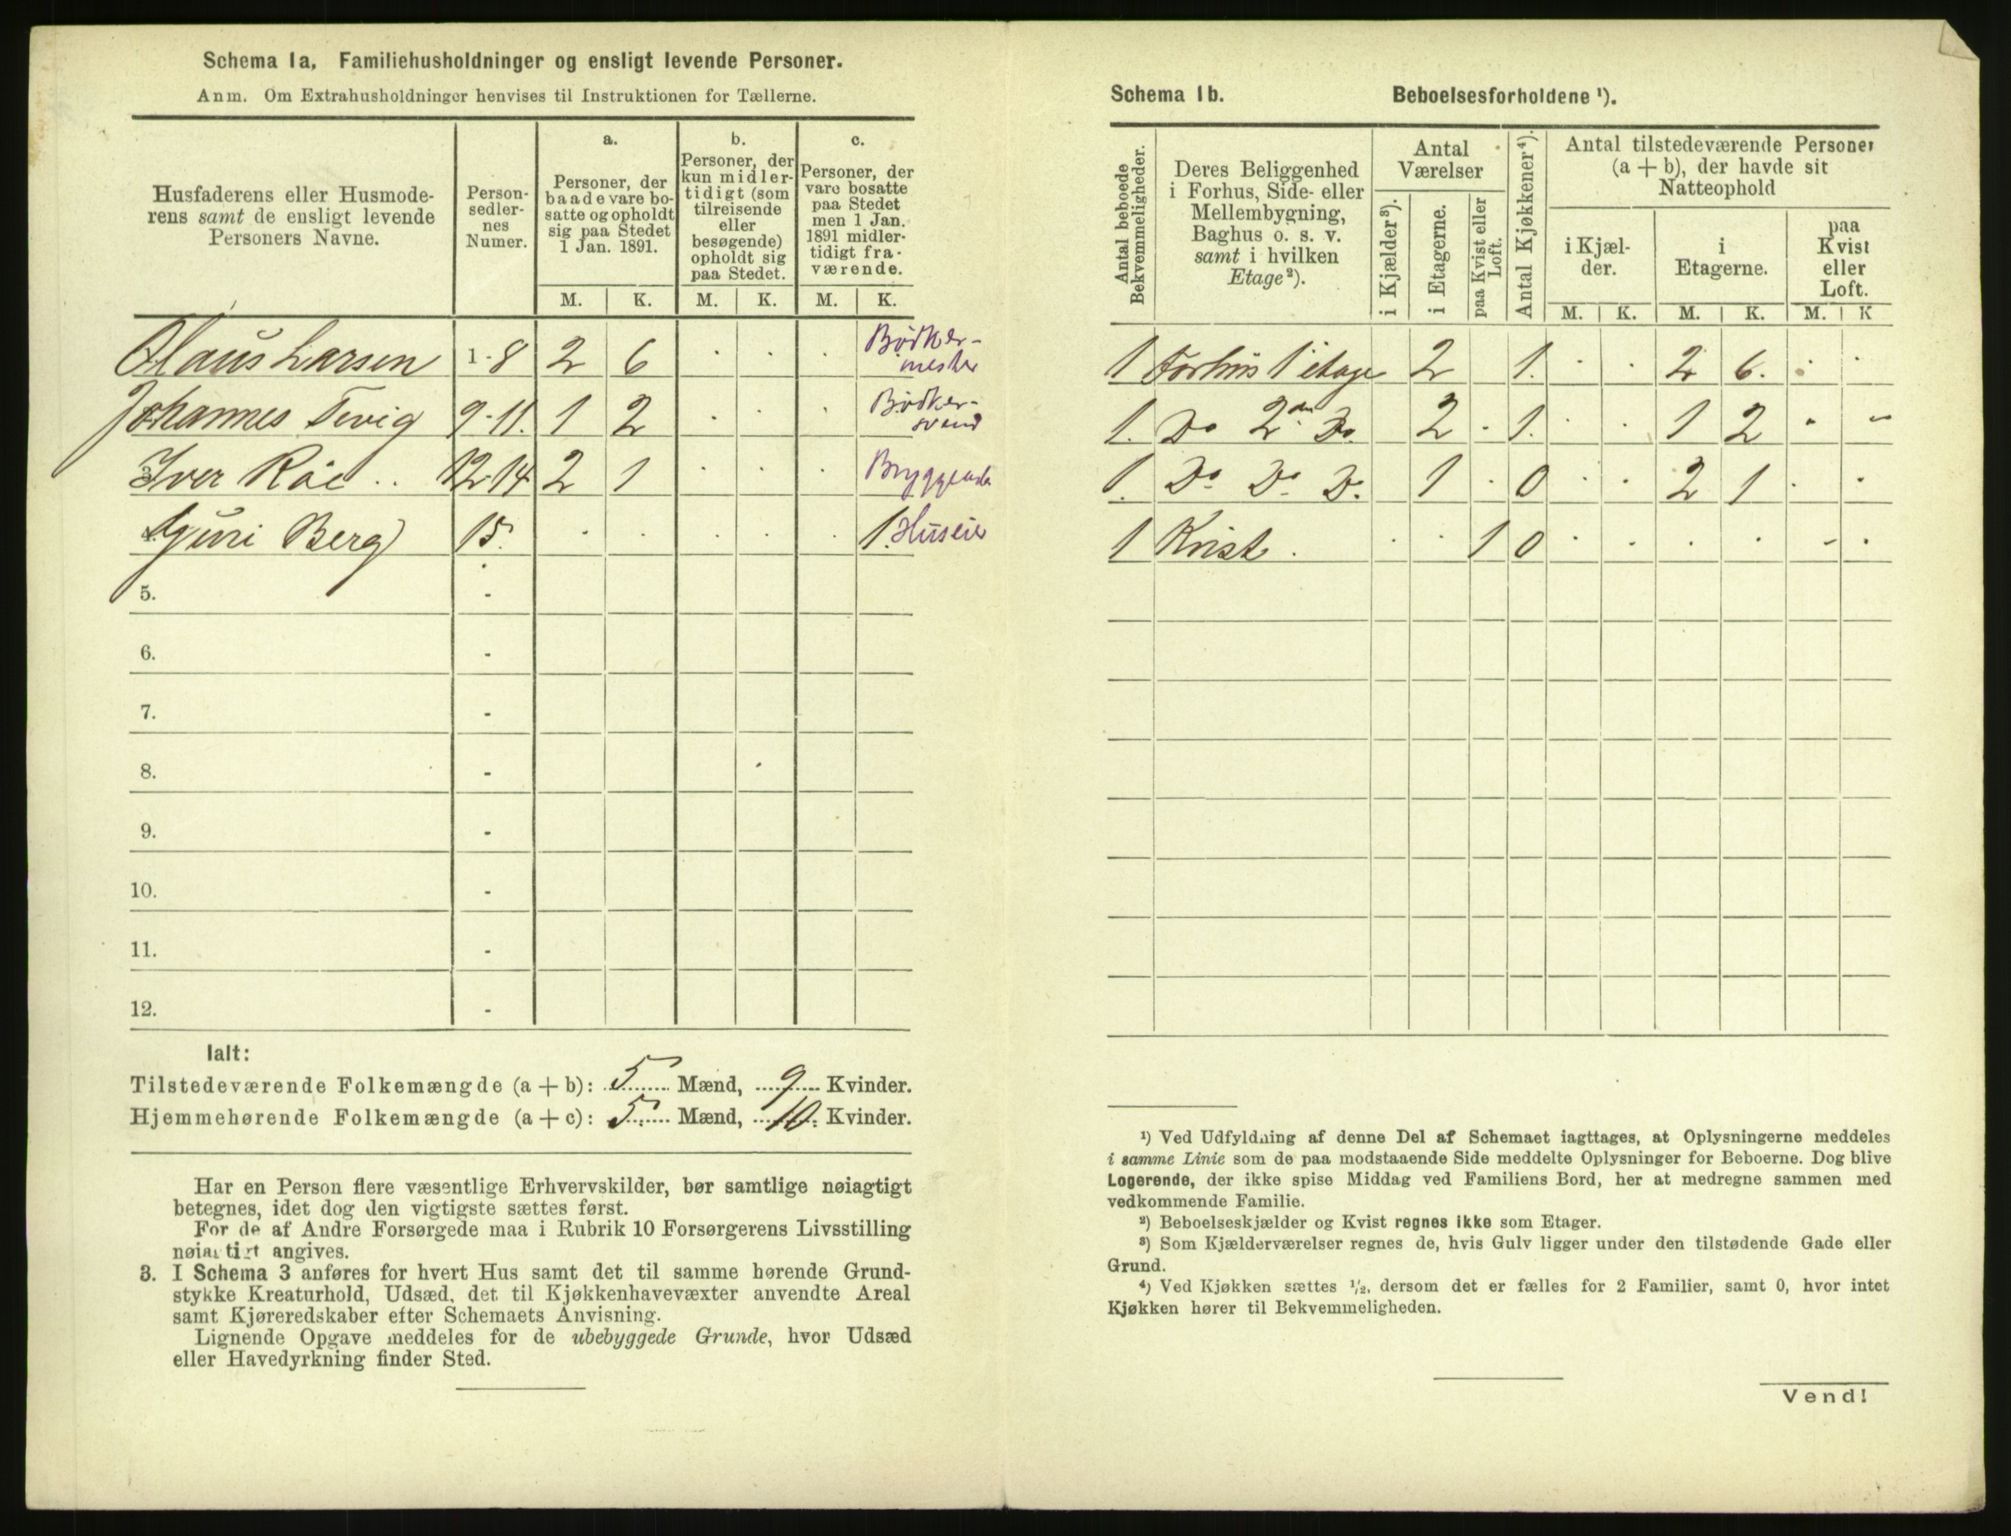 Schema 1a. Familiehusholdninger og ensligt levende Personer.
Anm. Om Extrahusholdninger henvises til Instruktionen for Tællerne.
Husfaderens eller Husmoderens samt de ensligt levende Personers Navne.
Personsedlernes Numer.
a. Personer, der baade vare bosatte og opholdt sig paa Stedet 1 Jan. 1891.
b. Personer, der kun midlertidigt (som tilreisende eller besøgende) opholdt sig paa Stedet.
c. Personer, der vare bosatte paa Stedet men 1 Jan. 1891 midlertidigt fraværende.
M. K. M. K. M. K.
Olaus Larsen 1-8 2 6 · · · Bødkermester
Johannes Tevig 9-11. 1 2 · · · Bødkersvend
3. Iver Roe .. 12-14 2 1 · · ·
4. Guri Berg 15. · · · · · 1. Huseier
5. -
6. -
7. -
8. -
9. -
10. -
11. -
12. -
Ialt:
Tilstedeværende Folkemængde (a + b): 5 Mænd, 9 Kvinder.
Hjemmehørende Folkemængde (a + c): 5 Mænd, 10 Kvinder.
Har en Person flere væsentlige Erhvervskilder, bør samtlige nøiagtigt
betegnes, idet dog den vigtigste sættes først.
For de af Andre Forsørgede maa i Rubrik 10 Forsørgerens Livsstilling
nøiagtigt angives.
3. I Schema 3 anføres for hvert Hus samt det til samme hørende Grund-
stykke Kreaturhold, Udsæd, det til Kjøkkenhavevæxter anvendte Areal
samt Kjøreredskaber efter Schemaets Anvisning.
Lignende Opgave meddeles for de ubebyggede Grunde, hvor Udsæd
eller Havedyrkning finder Sted.
Schema 1b. Beboelsesforholdene ¹).
Antal beboede Bekvemmeligheder.
Deres Beliggenhed i Forhus, Side- eller Mellembygning, Baghus o. s. v. samt i hvilken Etage²).
Antal Værelser
i Kjælder³).
i Etagerne.
paa Kvist eller Loft.
Antal Kjøkkener⁴).
Antal tilstedeværende Personer (a + b), der havde sit Natteophold
i Kjælder.
i Etagerne.
paa Kvist eller Loft.
M. K. M. K. M. K
1 Forhus 1 etage 2 1. · · 2 6. · ·
1. Do 2den Do. 2 · 1. · · 1 2 · -
1. Do Do. D. 1 · 0 · · 2 1 · ·
1 Kvist. · · 1 0 · · · · - ·
¹) Ved Udfyldning af denne Del af Schemaet iagttages, at Oplysningerne meddeles
i samme Linie som de paa modstaaende Side meddelte Oplysninger for Beboerne. Dog blive
Logerende, der ikke spise Middag ved Familiens Bord, her at medregne sammen med
vedkommende Familie.
²) Beboelseskjælder og Kvist regnes ikke som Etager.
³) Som Kjælderværelser regnes de, hvis Gulv ligger under den tilstødende Gade eller
Grund.
⁴) Ved Kjøkken sættes ¹/₂, dersom det er fælles for 2 Familier, samt 0, hvor intet
Kjøkken hører til Bekvemmeligheden.
Vend!